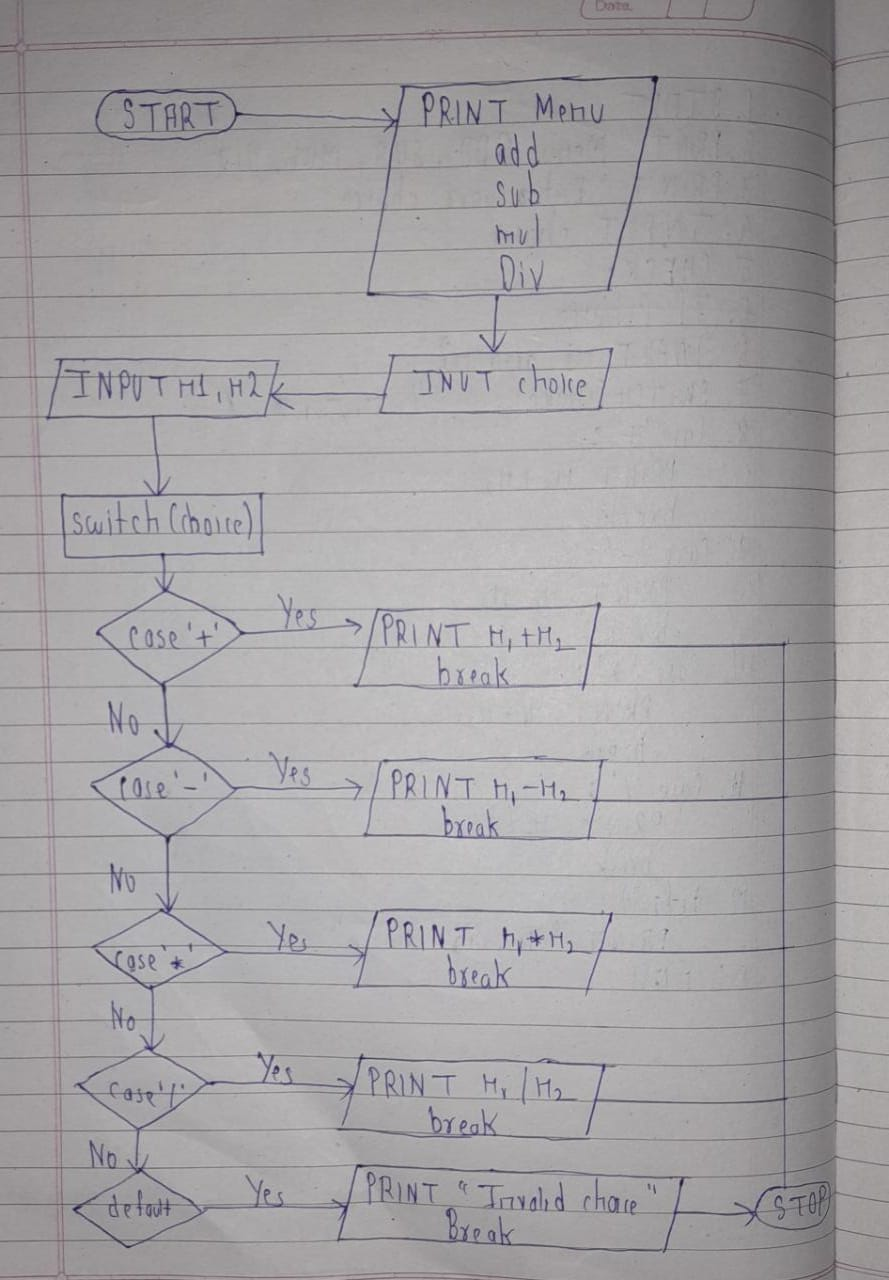 Date
START
PRINT Menu
add
sub
mul
Div
INUT choice
INPUT n1, n2
switch (choice)
case '+'
Yes
PRINT n1 + n2
break
No
case '-'
Yes
PRINT n1 - n2
break
No
case '*'
Yes
PRINT n1 * n2
break
No
case '/'
Yes
PRINT n1 / n2
break
No
default
Yes
PRINT "Invalid choice"
Break
STOP